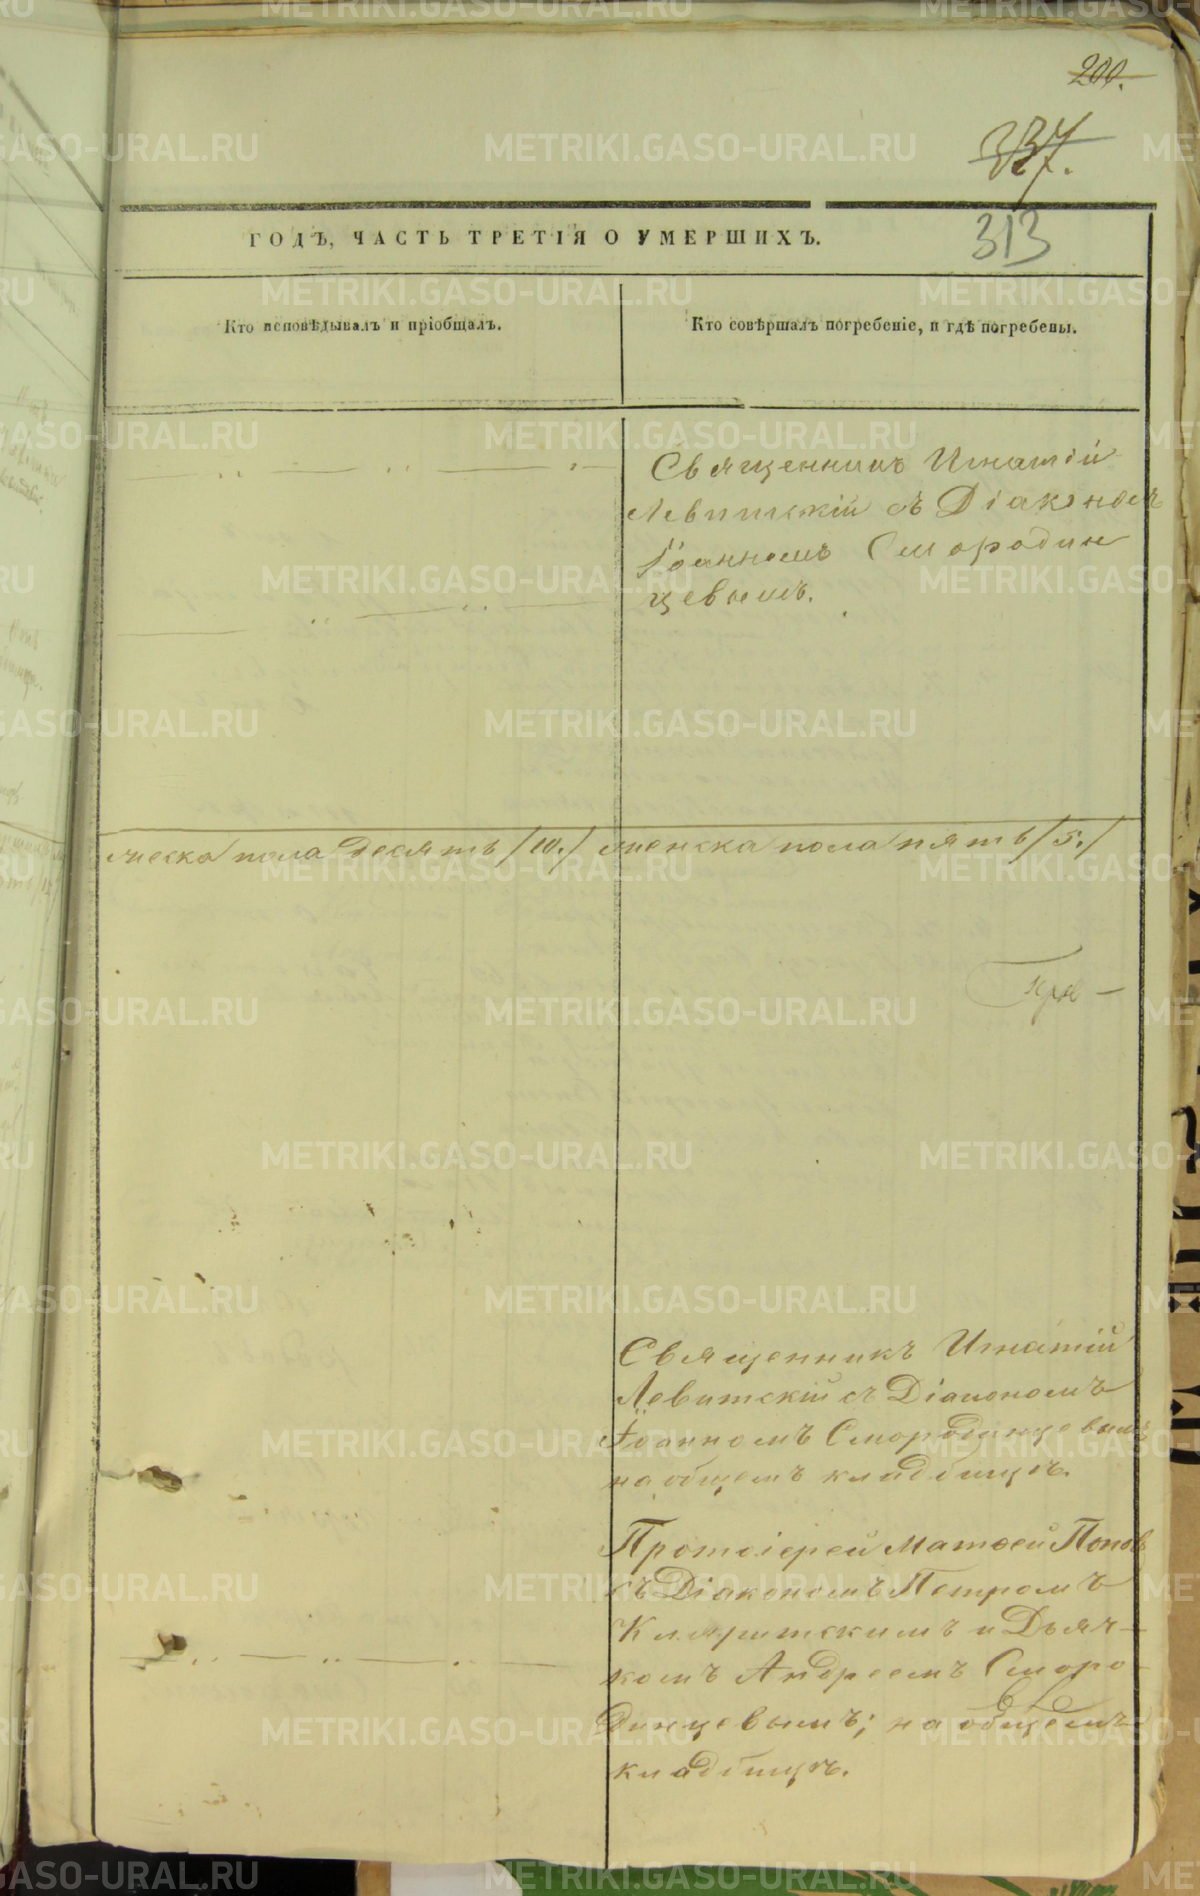 200.
337.
313
ГОДЪ, ЧАСТЬ ТРЕТІЯ О УМЕРШИХЪ.
Кто исповѣдывалъ и пріобщалъ.
Кто совѣршалъ погребеніе, и гдѣ погребены.
Священникъ Игнатій
Левитскій съ Діакономъ
Іоанномъ Смородин
цевымъ.
мужеска пола десять /10./ женска пола пять /5./
Священникъ Игнатій
Левитскій съ Діакономъ
Іоанномъ Смородинцевымъ
на общемъ кладбищѣ.
Протоіерей Матѳей Попов
съ Діакономъ Петромъ
Кляритскимъ и Дьяч-
комъ Андреемъ Сморо-
динцевымъ; на общемъ
кладбищѣ.
METRIKI.GASO-URAL.RU